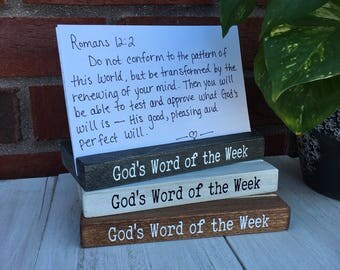 Romans 12:2
Do not conform to the pattern of
this world, but be transformed by the
renewing of your mind. Then you will
be able to test and approve what God's
will is — His good, pleasing and
perfect will.
God's Word of the Week
God's Word of the Week
God's Word of the Week